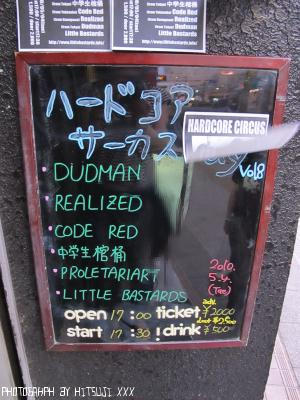 中学生棺桶
Code Red
Realized
Dudman
Little Bastards
http://www.littlebastards.info/
中学生棺桶
Code Red
Realized
Dudman
Little Bastards
http://www.littlebastards.info/
ハードコア
サーカス
HARDCORE CIRCUS
Vol.8
• DUDMAN
• REALIZED
• CODE RED
• 中学生棺桶
• PROLETARIART
• LITTLE BASTARDS
2010.
5.4.
(Tue)
open 17:00
start 17:30
adv.
ticket ¥2000
door ¥2500
1drink ¥500
PHOTOGRAPH BY HITSUJI XXX